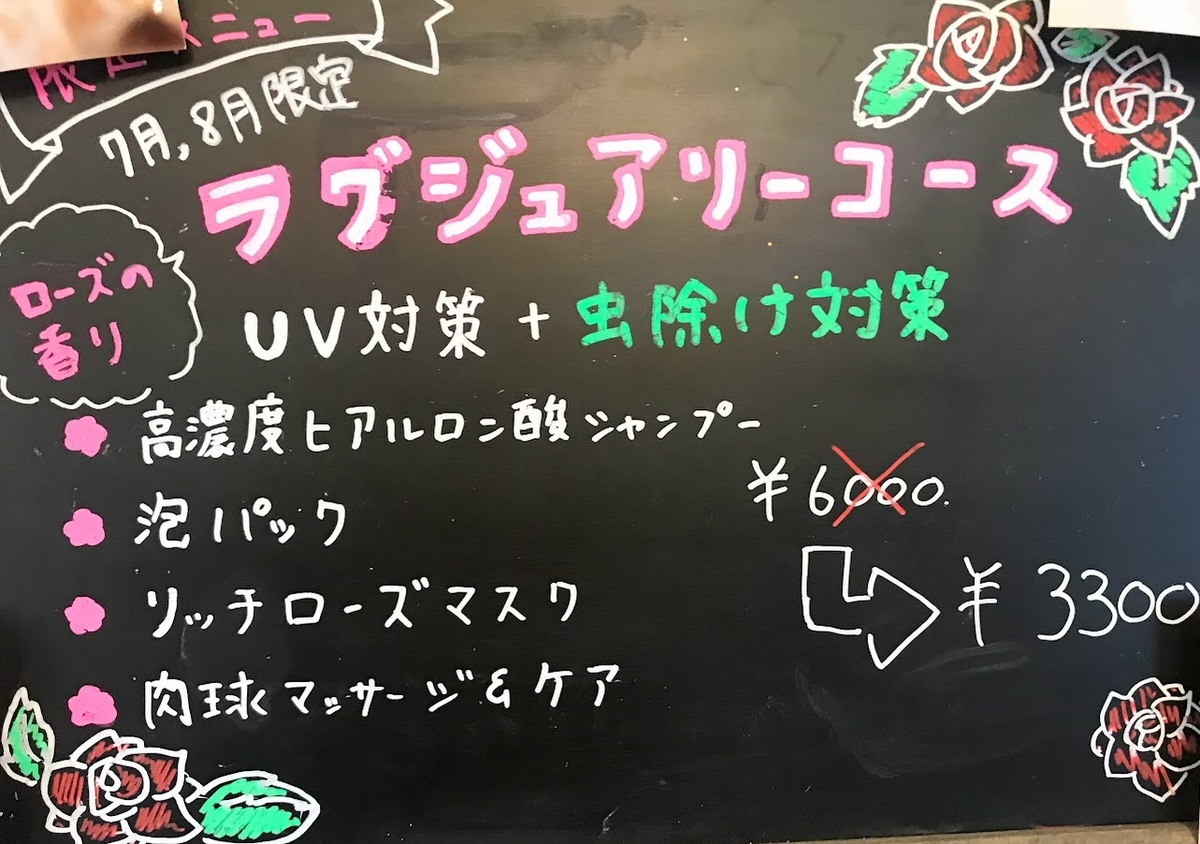 限定メニュー
7月,8月限定
ラグジュアリーコース
ローズの
香り
UV対策+虫除け対策
高濃度ヒアルロン酸シャンプー
泡パック
リッチローズマスク
肉球マッサージ&ケア
¥6000.
¥3300